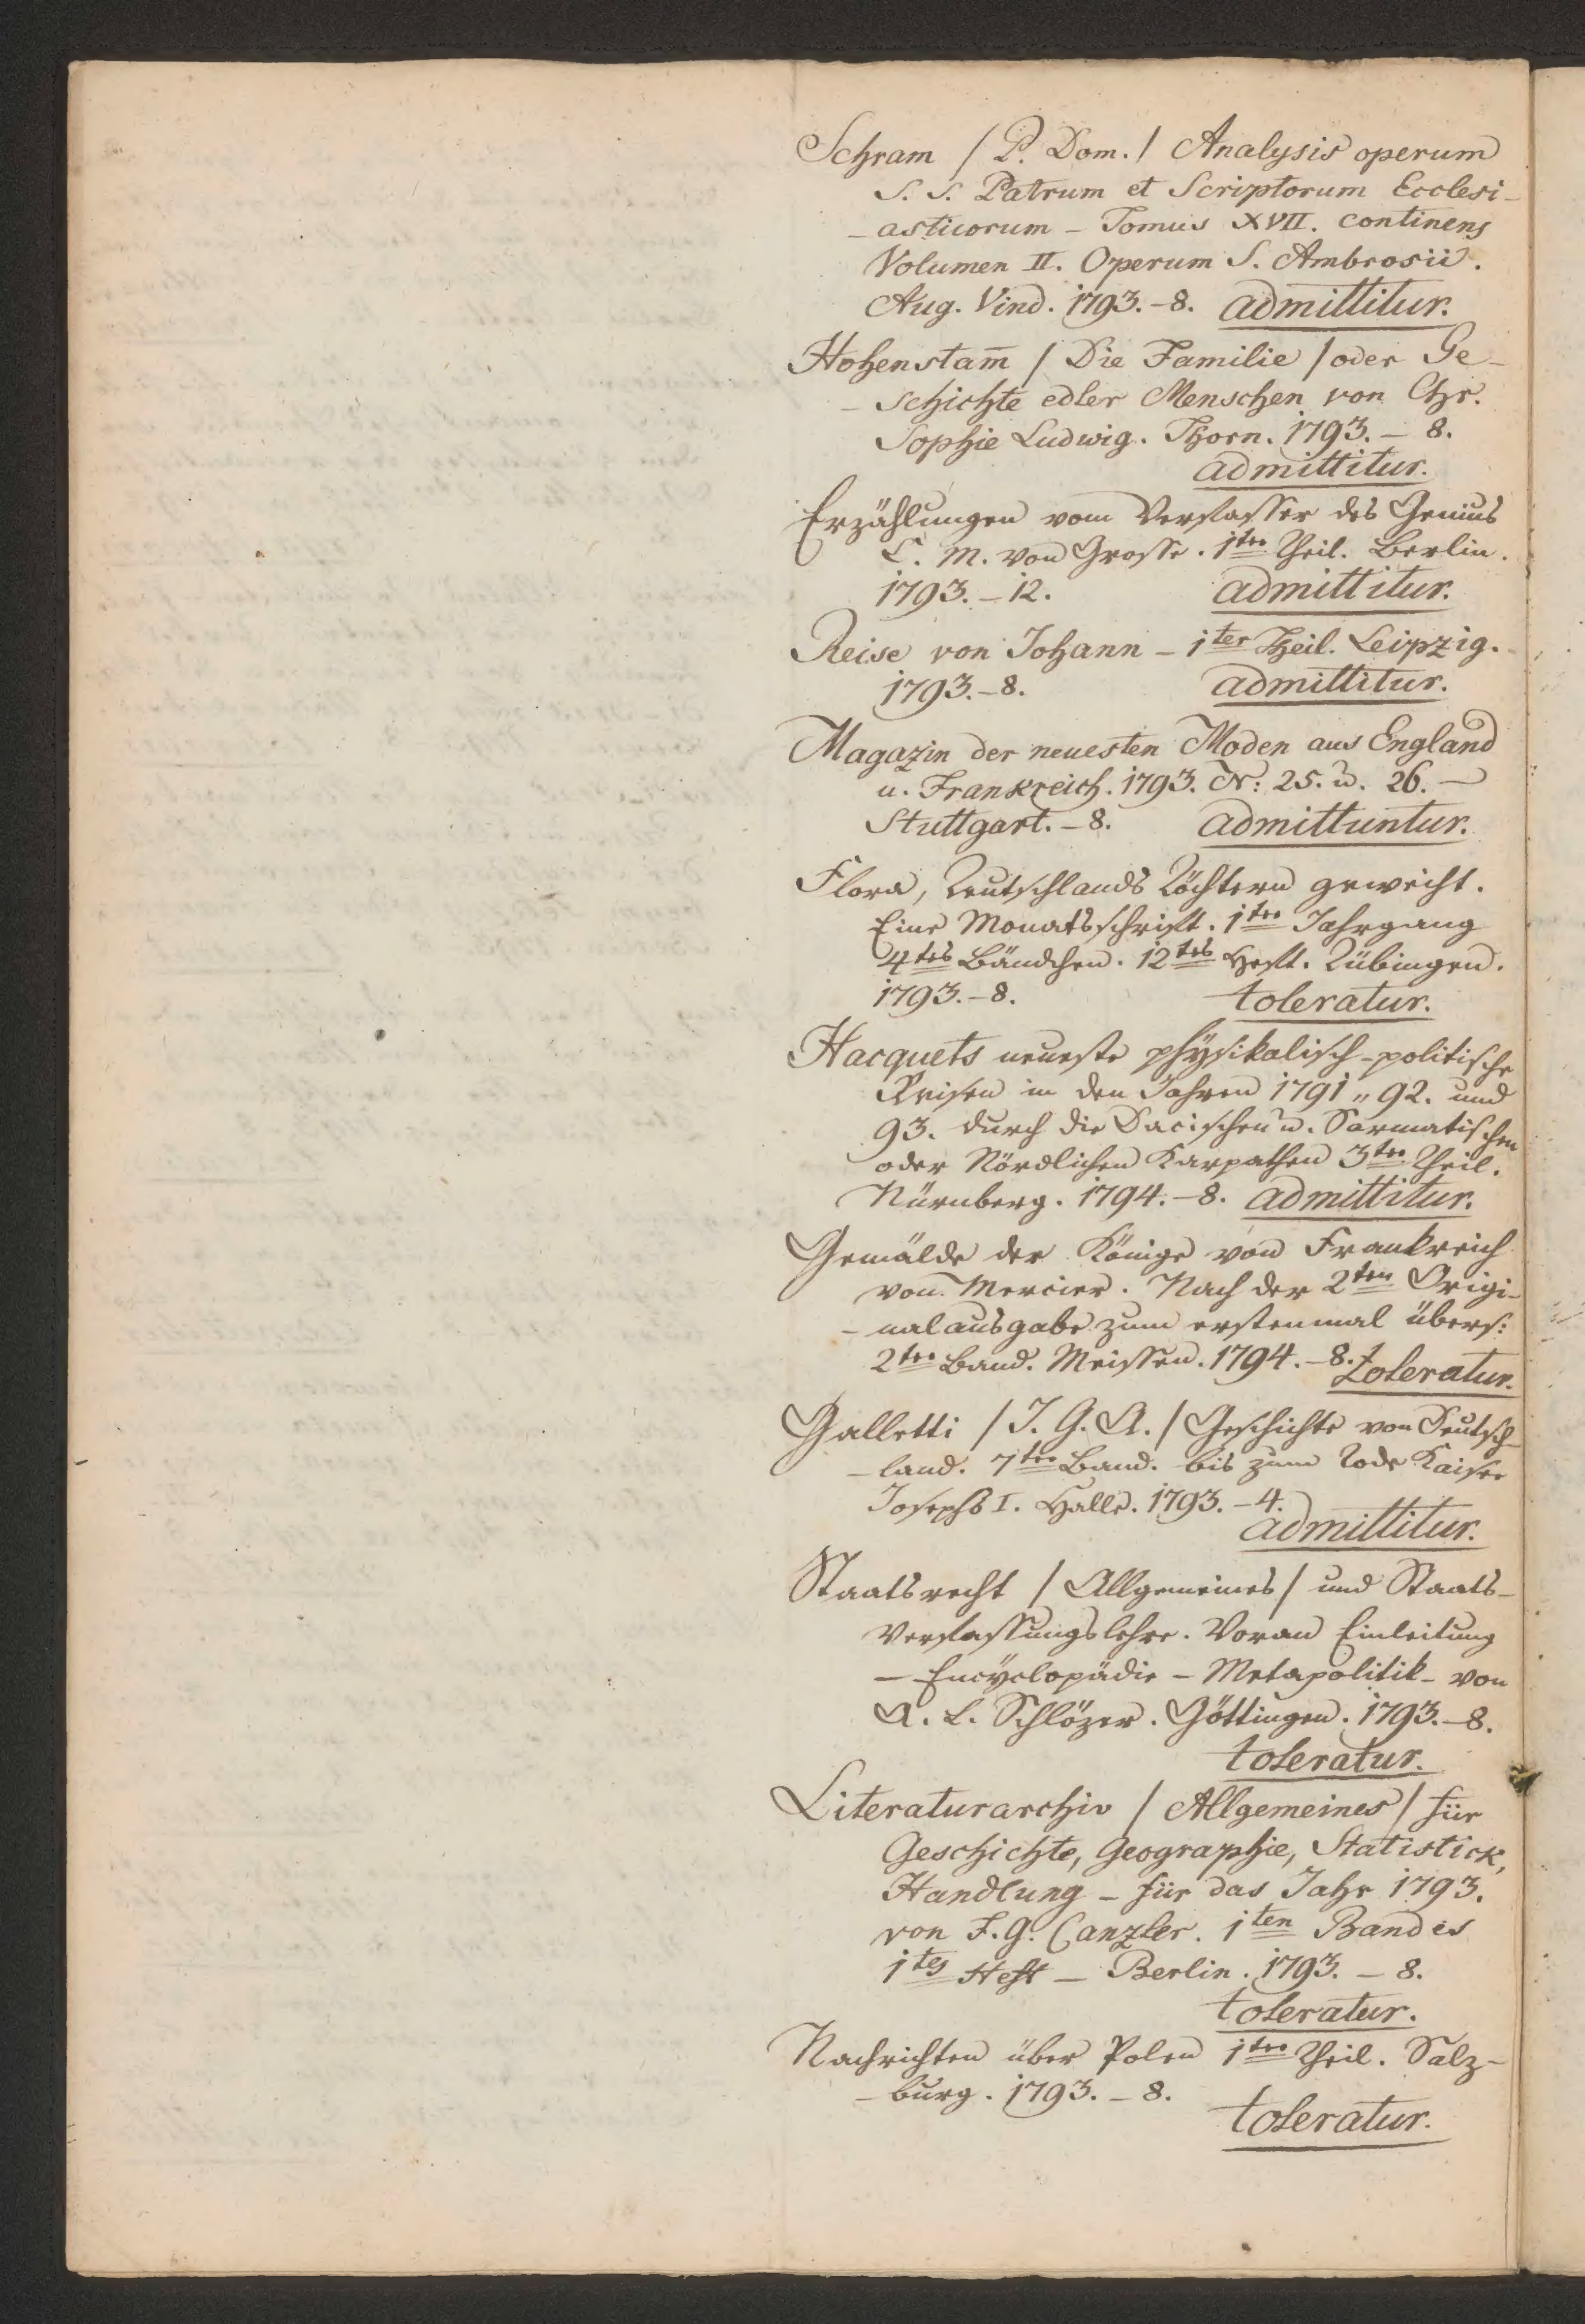 Schram / P. Dom. / Analysis operum
S. S. Patrum et Scriptorum Ecclesi-
-asticorum - Tomus XVII. continens
Volumen II. Operum S. Ambrosii.
Aug. Vind. 1793. - 8. admittitur.
Hohenstam̄ / Die Familie / oder Ge-
-schichte edler Menschen von Chr.
Sophie Ludwig. Thorn. 1793. - 8.
admittitur.
Erzählungen vom Verfasser des Genius
C. M. von Grosse. 1ter Theil. Berlin.
1793. - 12. admittitur.
Reise von Johann - 1ter Theil. Leipzig.
1793. - 8. admittitur.
Magazin der neuesten Moden aus England
u. Frankreich. 1793. N: 25. u. 26. -
Stuttgart. - 8. admittuntur.
Flora, Teutschlands Töchtern geweiht.
Eine Monatsschrift. 1ter Jahrgang
4tes Bändchen. 12tes Heft. Tübingen.
1793. - 8. toleratur.
Hacquets neueste physikalisch-politische
Reisen in den Jahren 1791 „ 92. und
93. durch die Dacischen u. Sarmatischen
oder Nördlichen Karpathen 3ter Theil.
Nürnberg. 1794. - 8. admittitur.
Gemälde der Könige von Frankreich
von Mercier. Nach der 2ten Origi-
-nalausgabe zum erstenmal übers:
2ter Band. Meissen. 1794. - 8. toleratur.
Galletti / J. G. A. / Geschichte von Deutsch-
-land. 7ter Band. bis zum Tode Kaiser
Josephs I. Halle. 1793. - 4.
admittitur.
Staatsrecht / Allgemeines / und Staats-
Verfassungslehre. Voran Einleitung
- Encyclopädie - Metapolitik - von
A. L. Schlözer. Göttingen. 1793. - 8.
toleratur.
Literaturarchiv / Allgemeines / für
Geschichte, Geographie, Statistick,
Handlung - für das Jahr 1793.
von F. G. Canzler. 1ten Bandes
1tes Heft - Berlin. 1793. - 8.
toleratur.
Nachrichten über Polen 1ter Theil. Salz-
-burg. 1793. - 8.
toleratur.